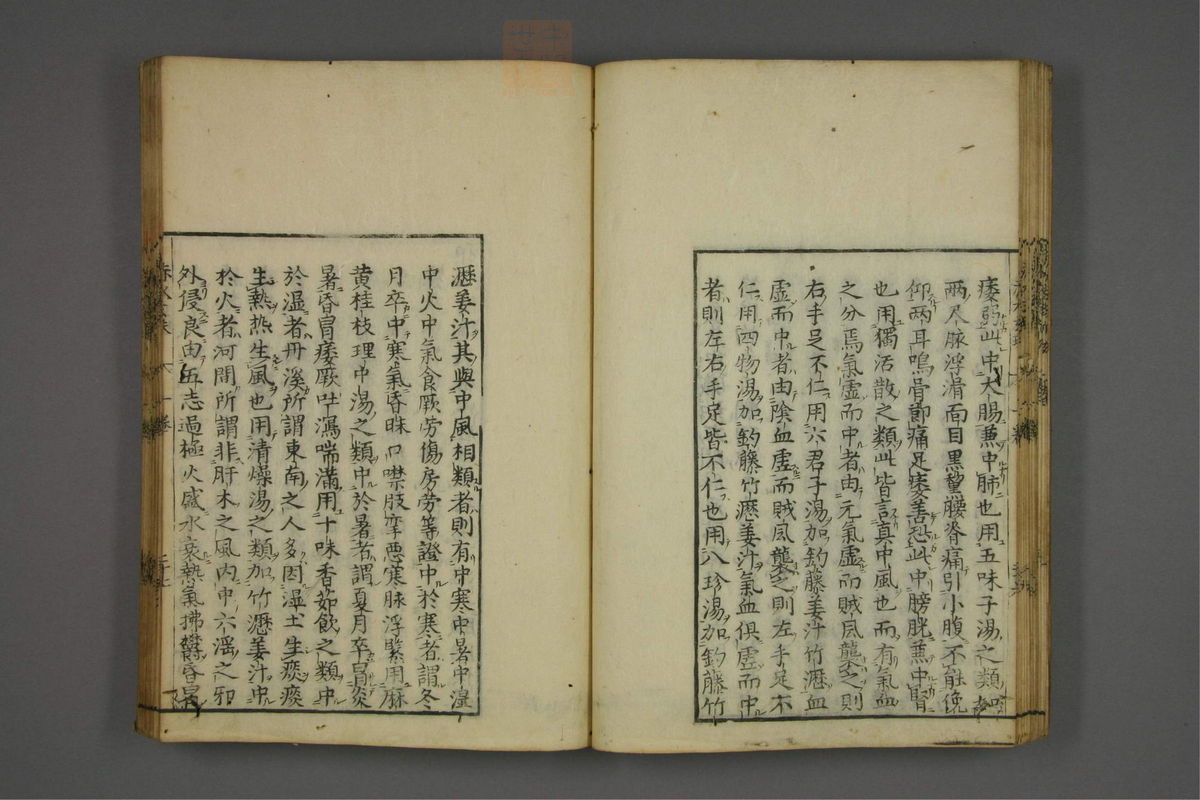 痿弱此中大腸兼中肺也用五味子湯之類
兩尺脉浮滑面目黒黧腰脊痛引小腹不能俛
仰兩耳嗚骨節痛足痿善恐此中膀胱兼中腎
也用獨活散之類此皆言真中風也而有氣血
之分焉氣虛而中者由元氣虛而賊風襲之則
右手足不仁用六君子湯加釣藤姜汁竹瀝血
虛而中者由陰血虛而賊風襲之則左手足不
仁用四物湯加釣藤竹瀝姜汁氣血俱虛而中
者則左右手足皆不仁也用八珍湯加釣藤竹
瀝姜汁其與中風相類者則有中寒中暑中濕
中火中氣食厥労傷房労等證中於寒者謂冬
月卒中寒氣昏昧口噤肢攣惡寒脉浮緊用麻
黄桂枝理中湯之類中於暑者謂夏月卒冒炎
暑昏冒痿厥吐瀉喘滿用十味香茹飲之類中
於湿者丹溪所謂東南之人多因湿土生痰痰
生熱热生風也用清燥湯之類加竹瀝姜汁中
於火者河間所謂非肝木之風内中六淫之邪
外侵良由五志過極火盛水衰熱氣拂鬱昏冒